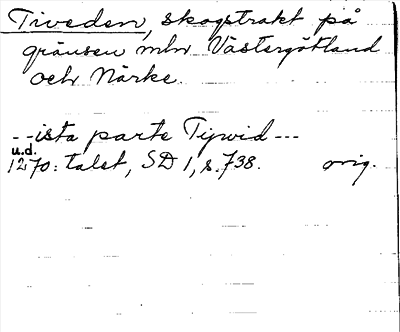 Tiveden, skogstrakt på
gränsen mln Västergötland
och Närke.
--ista parte Tijwid---
u.d.
1270: talet, SD 1, s. 738. orig.